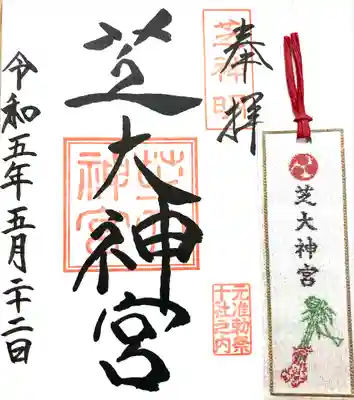 奉拝
芝神明
芝大神宮
芝大
神宮
元准勅祭
十社之内
令和五年五月二十二日
芝大神宮